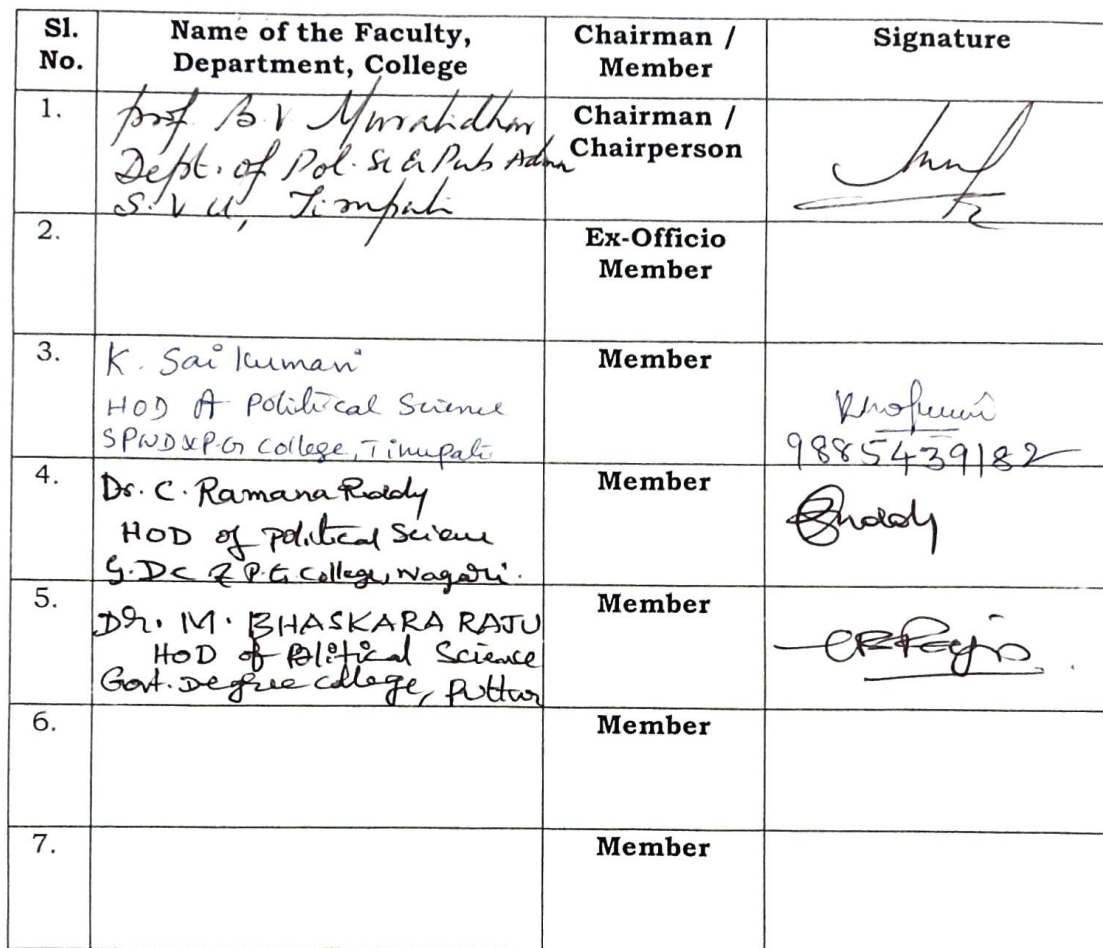 Sl. No.
Name of the Faculty, Department, College
Chairman / Member
Signature
1.
Prof. B V Muralidhar
Dept. of Pol. Sc & Pub Admn
S.V U, Tirupati
Chairman / Chairperson
2.
Ex-Officio Member
3.
K. Sai Kumari
HOD of Political Science
SPWD&PG College, Tirupati
Member
9885439182
4.
Dr. C. Ramana Reddy
HOD of political Science
G.DC & P.G. College, Nagari.
Member
5.
Dr. M. BHASKARA RAJU
HOD of Political Science
Govt. Degree college, Puttur
Member
6.
Member
7.
Member